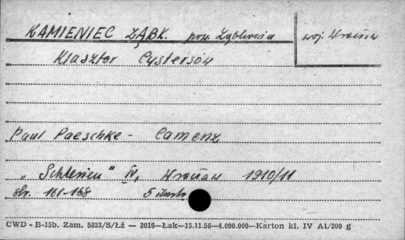 KAMIENIEC ZĄBK. pow. Ząbkowice woj. Wrocław
Klasztor Cystersów
Paul Paeschke - Camenz
„Schlesien" IV, Wrocław 1910/11
str. 161-168 5 ilustr.
CWD - B-15b. Zam. 5823/S/Łź — 2016—Łak—15.11.56—4.000.000—Karton kl. IV A1/200 g